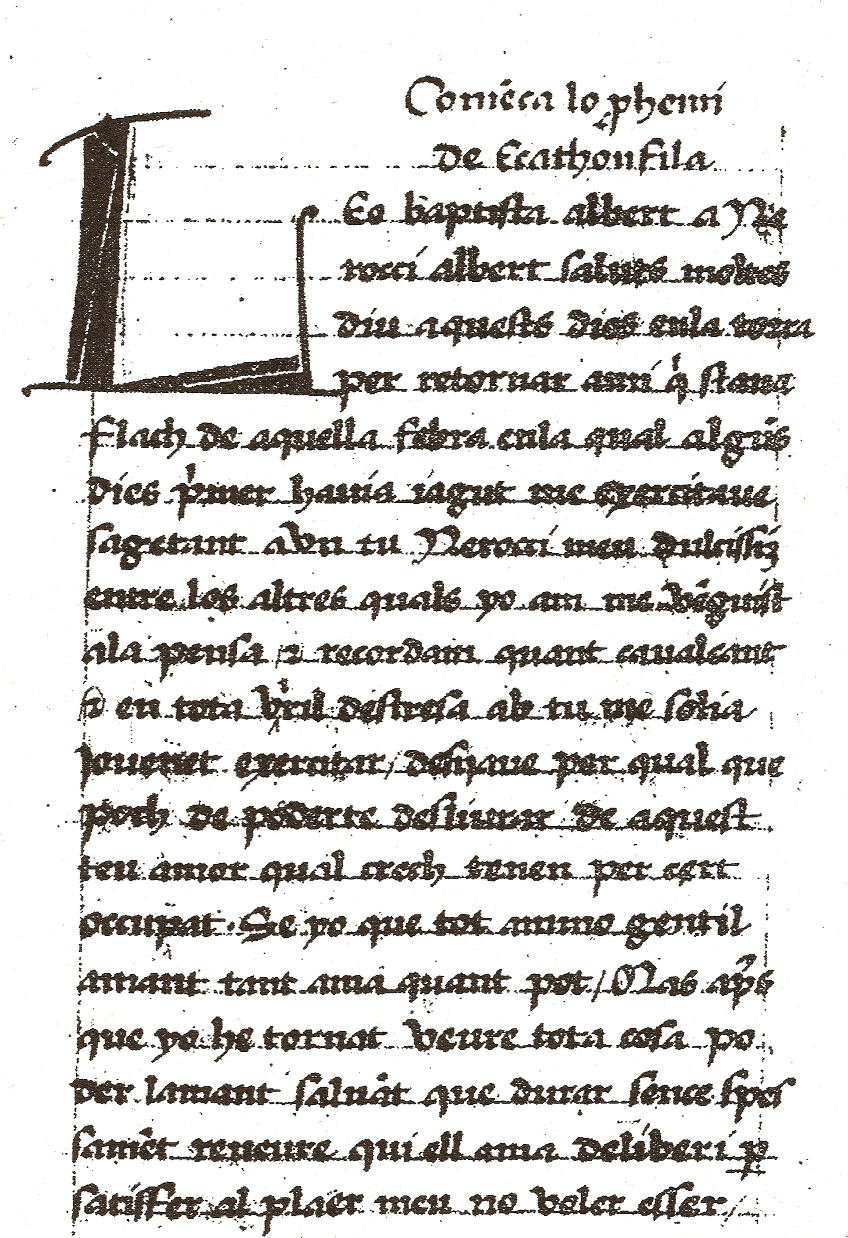 Comēca lo phemi
de Ecathonfila
L Eo baptista albert a Ne
rocci albert saluts moltes
diu aquests dies enla terra
per retornar anni q̄ staua
flach de aquella febra enla qual alguns
dies p̄mer hauia iagut me exercitaue
sagetant aVn tu Nerocci meu dulcissiz
entre los altres quals yo am me vēguist
ala pensa / ⁊ recordam quant caualcant
⁊ en tota v̓ril destresa ab tu me solia
jouenet exercitar / desijaue per qual que
poch de poderte desliurar de aquest
teu amor qual crech tenen per cert
occupat · Se yo que tot animo gentil
amant tant ama quant pot / Mas ap̄s
que yo he tornat veure tota cosa po
der lamant saluāt que durar sence spes
samēt reueure qui ell ama deliberi ꝑ
satisffer al plaer meu no voler esser /